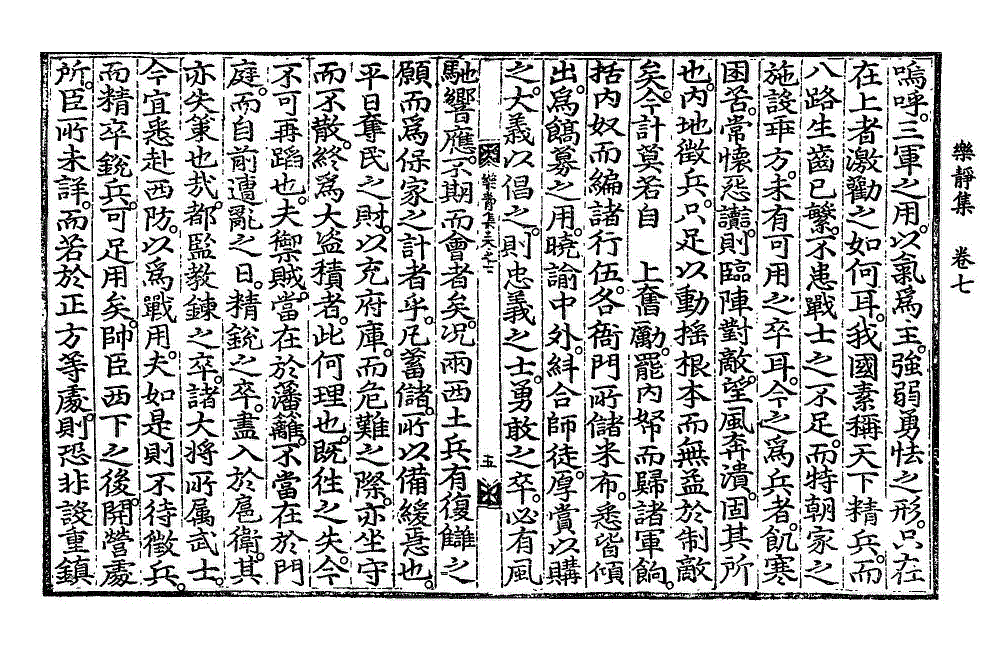 樂靜集　卷七
嗚呼。三軍之用。以氣爲主。強弱勇怯之形。只在
在上者激勸之如何耳。我國素稱天下精兵。而
八路生齒已繁。不患戰士之不足。而特朝家之
施設乖方。未有可用之卒耳。今之爲兵者。飢寒
困苦。常懷怨讟。則臨陣對敵。望風奔潰。固其所
也。內地徵兵。只足以動搖根本而無益於制敵
矣。今計莫若自　上奮勵。罷內帑而歸諸軍餉。
括內奴而編諸行伍。各衙門所儲米布。悉皆傾
出。爲餼募之用。曉諭中外。糾合師徒。厚賞以購
之。大義以倡之。則忠義之士。勇敢之卒。必有風
樂靜集卷之七　五
馳響應。不期而會者矣。况兩西土兵有復讎之
願而爲保家之計者乎。凡蓄儲。所以備緩急也。
平日奪民之財。以充府庫。而危難之際。亦坐守
而不散。終爲大盜積者。此何理也。旣徃之失。今
不可再蹈也。夫禦賊。當在於藩籬。不當在於門
庭。而自前遭亂之日。精銳之卒。盡入於扈衛。其
亦失策也哉。都監敎鍊之卒。諸大將所属武士。
今宜悉赴西防。以爲戰用。夫如是則不待徵兵。
而精卒銳兵。可足用矣。帥臣西下之後。開營處
所。臣所未詳。而若於正方等處。則恐非設重鎭